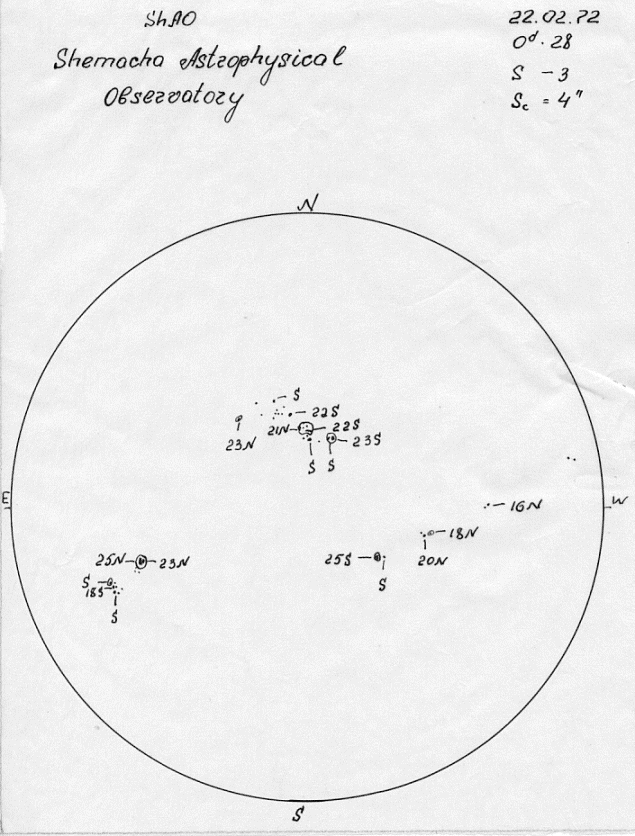 ShAO
Shemacha Astrophysical
Observatory
22.02.72
0ᵈ.28
S - 3
Sc = 4"
N
S
22S
21N 22S
23N
23S
S S
E
W
16N
18N
25S
20N
25N 23N
S
S
18S
S
S